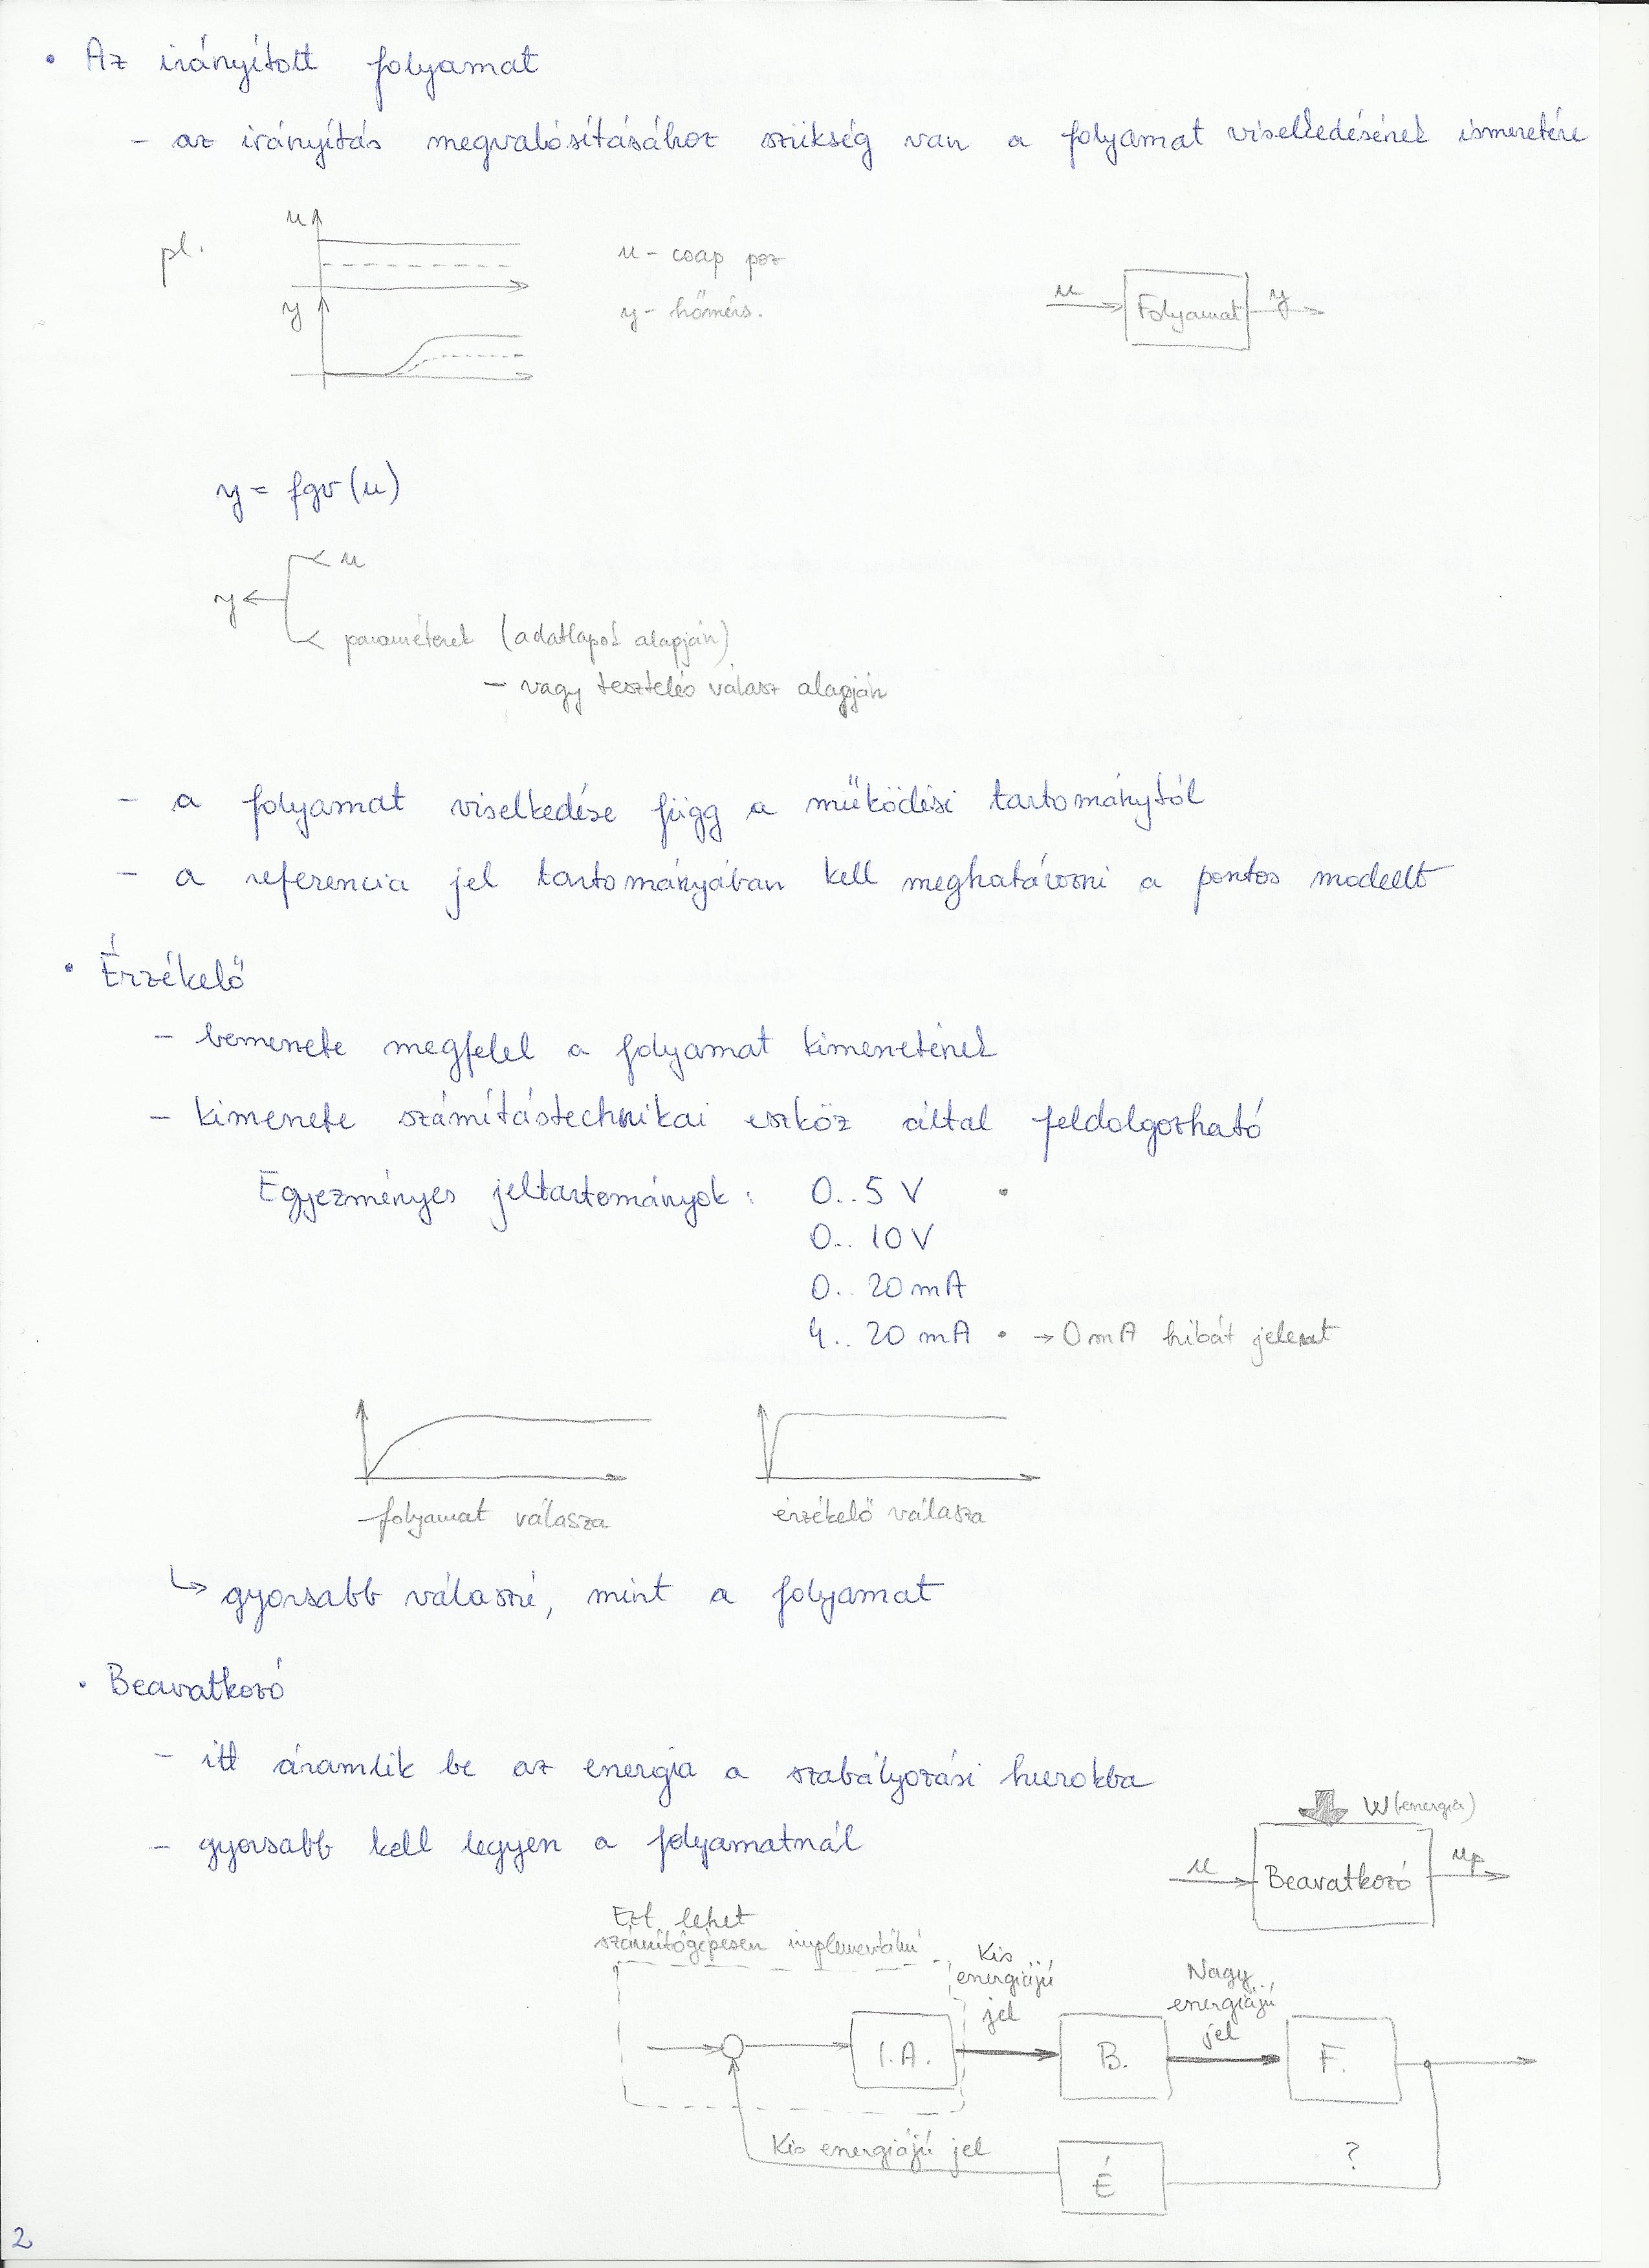 • Az irányított folyamat
- az irányítás megvalósításához szükség van a folyamat viselkedésének ismeretére
pl.
u
y
u - csap poz
y - hőmérs.
u
Folyamat
y
y = fgv (u)
u
y
paraméterek (adatlapok alapján)
- vagy tesztelés válasz alapján
- a folyamat viselkedése függ a működési tartománytól
- a referencia jel tartományában kell meghatározni a pontos modellt
• Érzékelő
- bemenete megfelel a folyamat kimenetének
- kimenete számítástechnikai eszköz által feldolgozható
Egyezményes jeltartományok: 0..5 V •
0.. 10 V
0.. 20 mA
4.. 20 mA • → 0 mA hibát jelent
folyamat válasza
érzékelő válasza
↳ gyorsabb válaszú, mint a folyamat
• Beavatkozó
- itt áramlik be az energia a szabályozási hurokba
- gyorsabb kell legyen a folyamatnál
W (energia)
u
Beavatkozó
up
Ezt lehet
számítógépesen implementálni
Kis
energiájú
jel
Nagy
energiájú
jel
I.A.
B.
F.
Kis energiájú jel
É
?
2